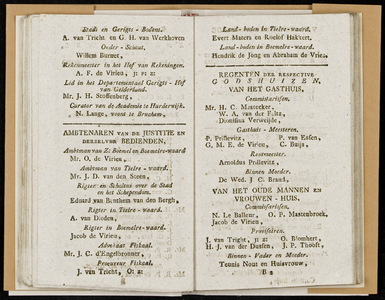 Stads en Gerigts - Bodens.
A. van Tricht en G. H. van Werkhoven
Onder - Schout,
Willem Burnet,
Rekenmeester in het Hof van Rekeningen.
A. F. de Virieu,
Lid in het Departementaal Geregts - Hof
van Gelderland.
Mr. J. H. Stoffenberg,
Curator van de Academie te Harderwijk.
N. Lange, woont te Bruchem,
AMBTENAREN VAN DE JUSTITIE EN
DERZELVER BEDIENDEN,
Ambtman van Z: Bomel en Boemelre-waard
Mr. O. de Virieu,
Ambtman van Tielre - waard.
Mr. J. D. van den Steen,
Rigter en Scholtus over de Stad
en het Schependom.
Eduard van Benthem van den Bergh,
Rigter in Tielre - waard.
A. van Dieden,
Rigter in Boemelre - waard,
Jacob de Virieu,
Advokaat Fiskaal.
Mr. J. C. d'Engelbronner,
Procureur Fiskaal.
J. van Tricht,
Land - boden in Tielre-waard.
Evert Maters en Roelof Hakkert,
Land - boden in Boemelre - waard.
Hendrik de Jong en Abraham de Vries,
REGENTEN DER RESPECTIVE
GODSHUIZEN,
VAN HET GASTHUIS,
Commissarissen.
Mr. H. C.
W. A. van der Fultz,
Dionisius Verweijde,
Gasthuis - Meesteren.
P. Prillevitz, P. van Essen,
G. M. E. de Virieu, C. Buijs
Rentmeester.
Arnoldus Prillevitz,
Binnen Moeder.
De Wed. J C. Brand,
VAN HET OUDE MANNEN EN
VROUWEN - HUIS,
Commissarissen.
N. Le Balleur, O. P. Mastenbroek,
Jacob de Virieu,
Provisoren.
J. van Tright, O. Blomhert,
H. J. van der Dussen, J. P. Thooft,
Binnen - Vader en Moeder.
Teunis Nout en Huisvrouw,
B 2